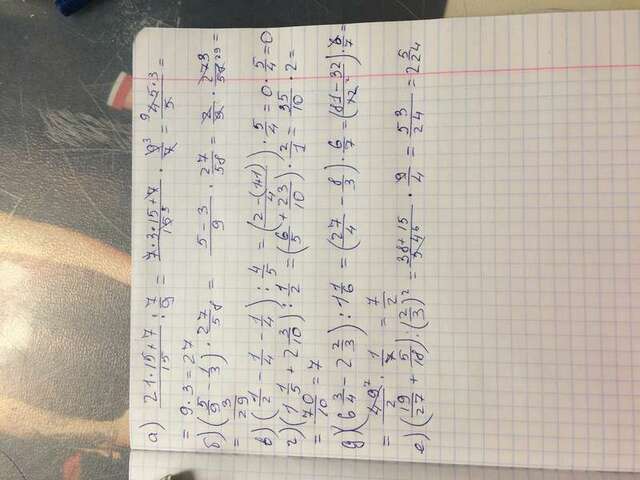 а) (21·15+7)/15 : 7/9 = (7·3·15+7)/15⁵ · 9³/7 = (⁹45·3)/5 =
= 9·3 = 27
б) (5/9 − 1/3) · 27/58 = (5−3)/9 · 27/58 = 2/9 · 27 3/58 29 =
= 3/29
в) (1/2 − 1/4 − 1/4) : 4/5 = ((2−(1+1))/4) · 5/4 = 0 · 5/4 = 0
г) (1 1/5 + 2 3/10) : 1/2 = (6/5 + 23/10) · 2/1 = 35/10 · 2 =
= 70/10 = 7
д) (6 3/4 − 2 2/3) : 1 1/6 = (27/4 − 8/3) · 6/7 = ((81−32)/12²) · 6/7 =
= 49⁷/2 · 1/7 = 7/2
е) (19/27 + 5/18) : (2/3)² = (38+15)/54⁶ · 9/4 = 53/24 = 2 5/24